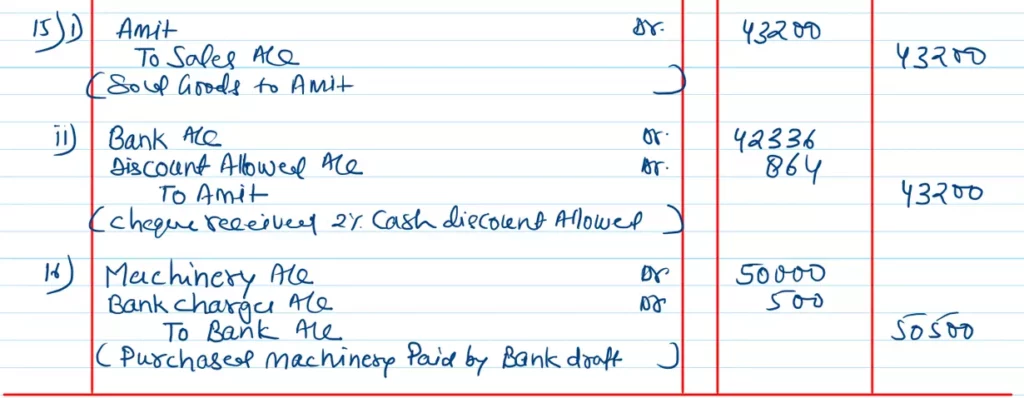 15) i) Amit Dr. 43200
To Sales A/c 43200
(Sold Goods to Amit)
ii) Bank A/c Dr. 42336
Discount Allowed A/c Dr. 864
To Amit 43200
(cheque received 2% Cash discount Allowed)
16) Machinery A/c Dr 50000
Bank charges A/c Dr 500
To Bank A/c 50500
(Purchased machinery Paid by Bank draft)